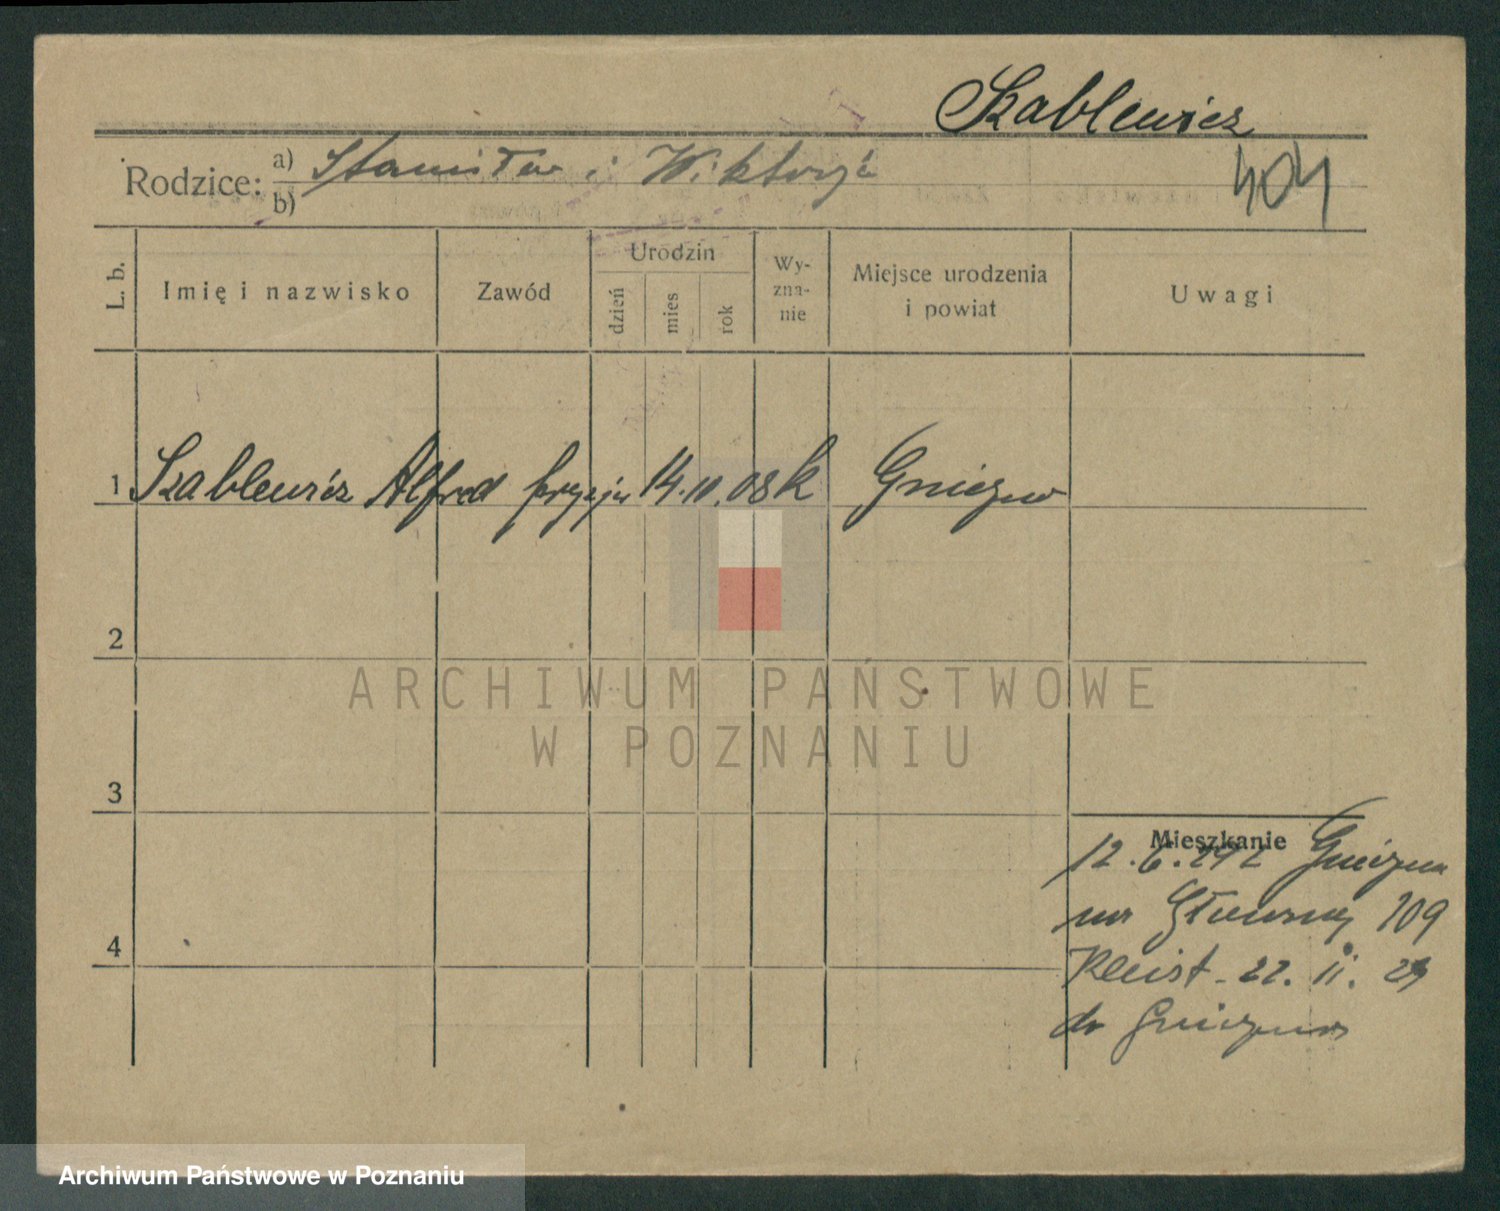 Szablewicz
404
Rodzice: a) Stanisław i Wiktorja
b)
L. b.
Imię i nazwisko
Zawód
Urodzin
dzień
mies
rok
Wy-
zna-
nie
Miejsce urodzenia
i powiat
Uwagi
1 Szablewicz Alfred fryzjer 14.11.08 k Gniezno
2
ARCHIWUM PAŃSTWOWE
W POZNANIU
3
Mieszkanie
12.6.29 z Gniezna
na Główną 109
Kleist. 22. II. 29
do Gniezna
4
Archiwum Państwowe w Poznaniu